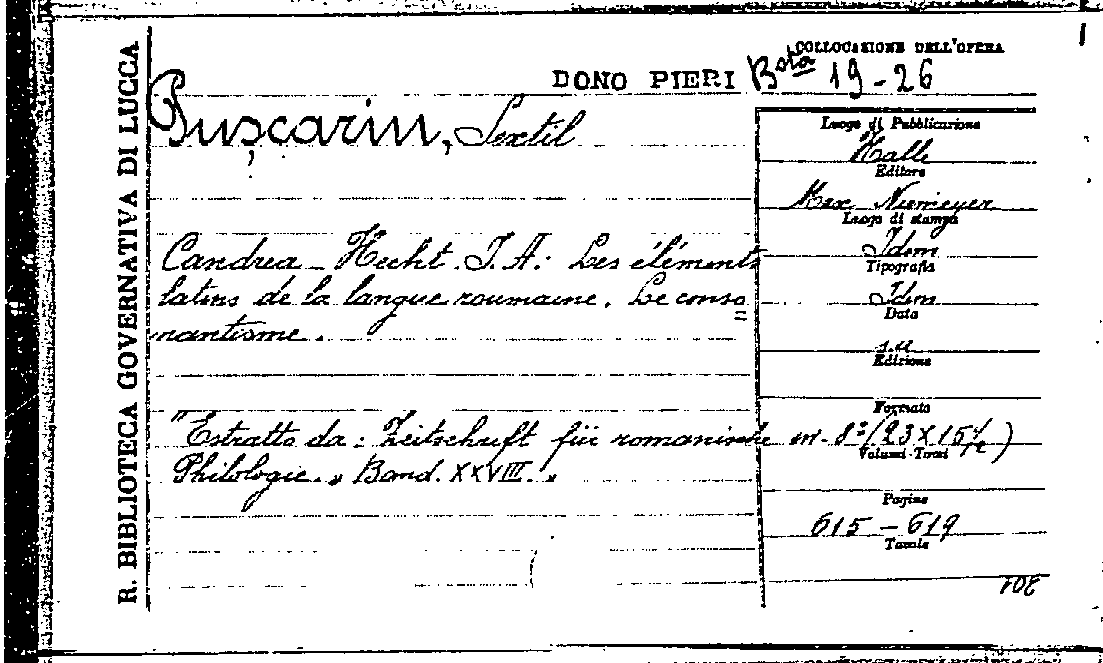 R. BIBLIOTECA GOVERNATIVA DI LUCCA
COLLOCAZIONE DELL'OPERA
DONO PIERI Bsta 19-26
Pușcariu, Sextil
Candrea - Hecht I. A: Les éléments
latins de la langue roumaine. Le conso
nantisme.
"Estratto da: Zeitschrift für romanische
Philologie. „ Band. XXVIII. „
Luogo di Pubblicazione
Halle
Editore
Max Niemeyer
Luogo di stampa
Idem
Tipografia
Idem
Data
Edizione
Formato
in-8º (23X15½)
Volumi-Tomi
Pagine
615 - 619
Tavole